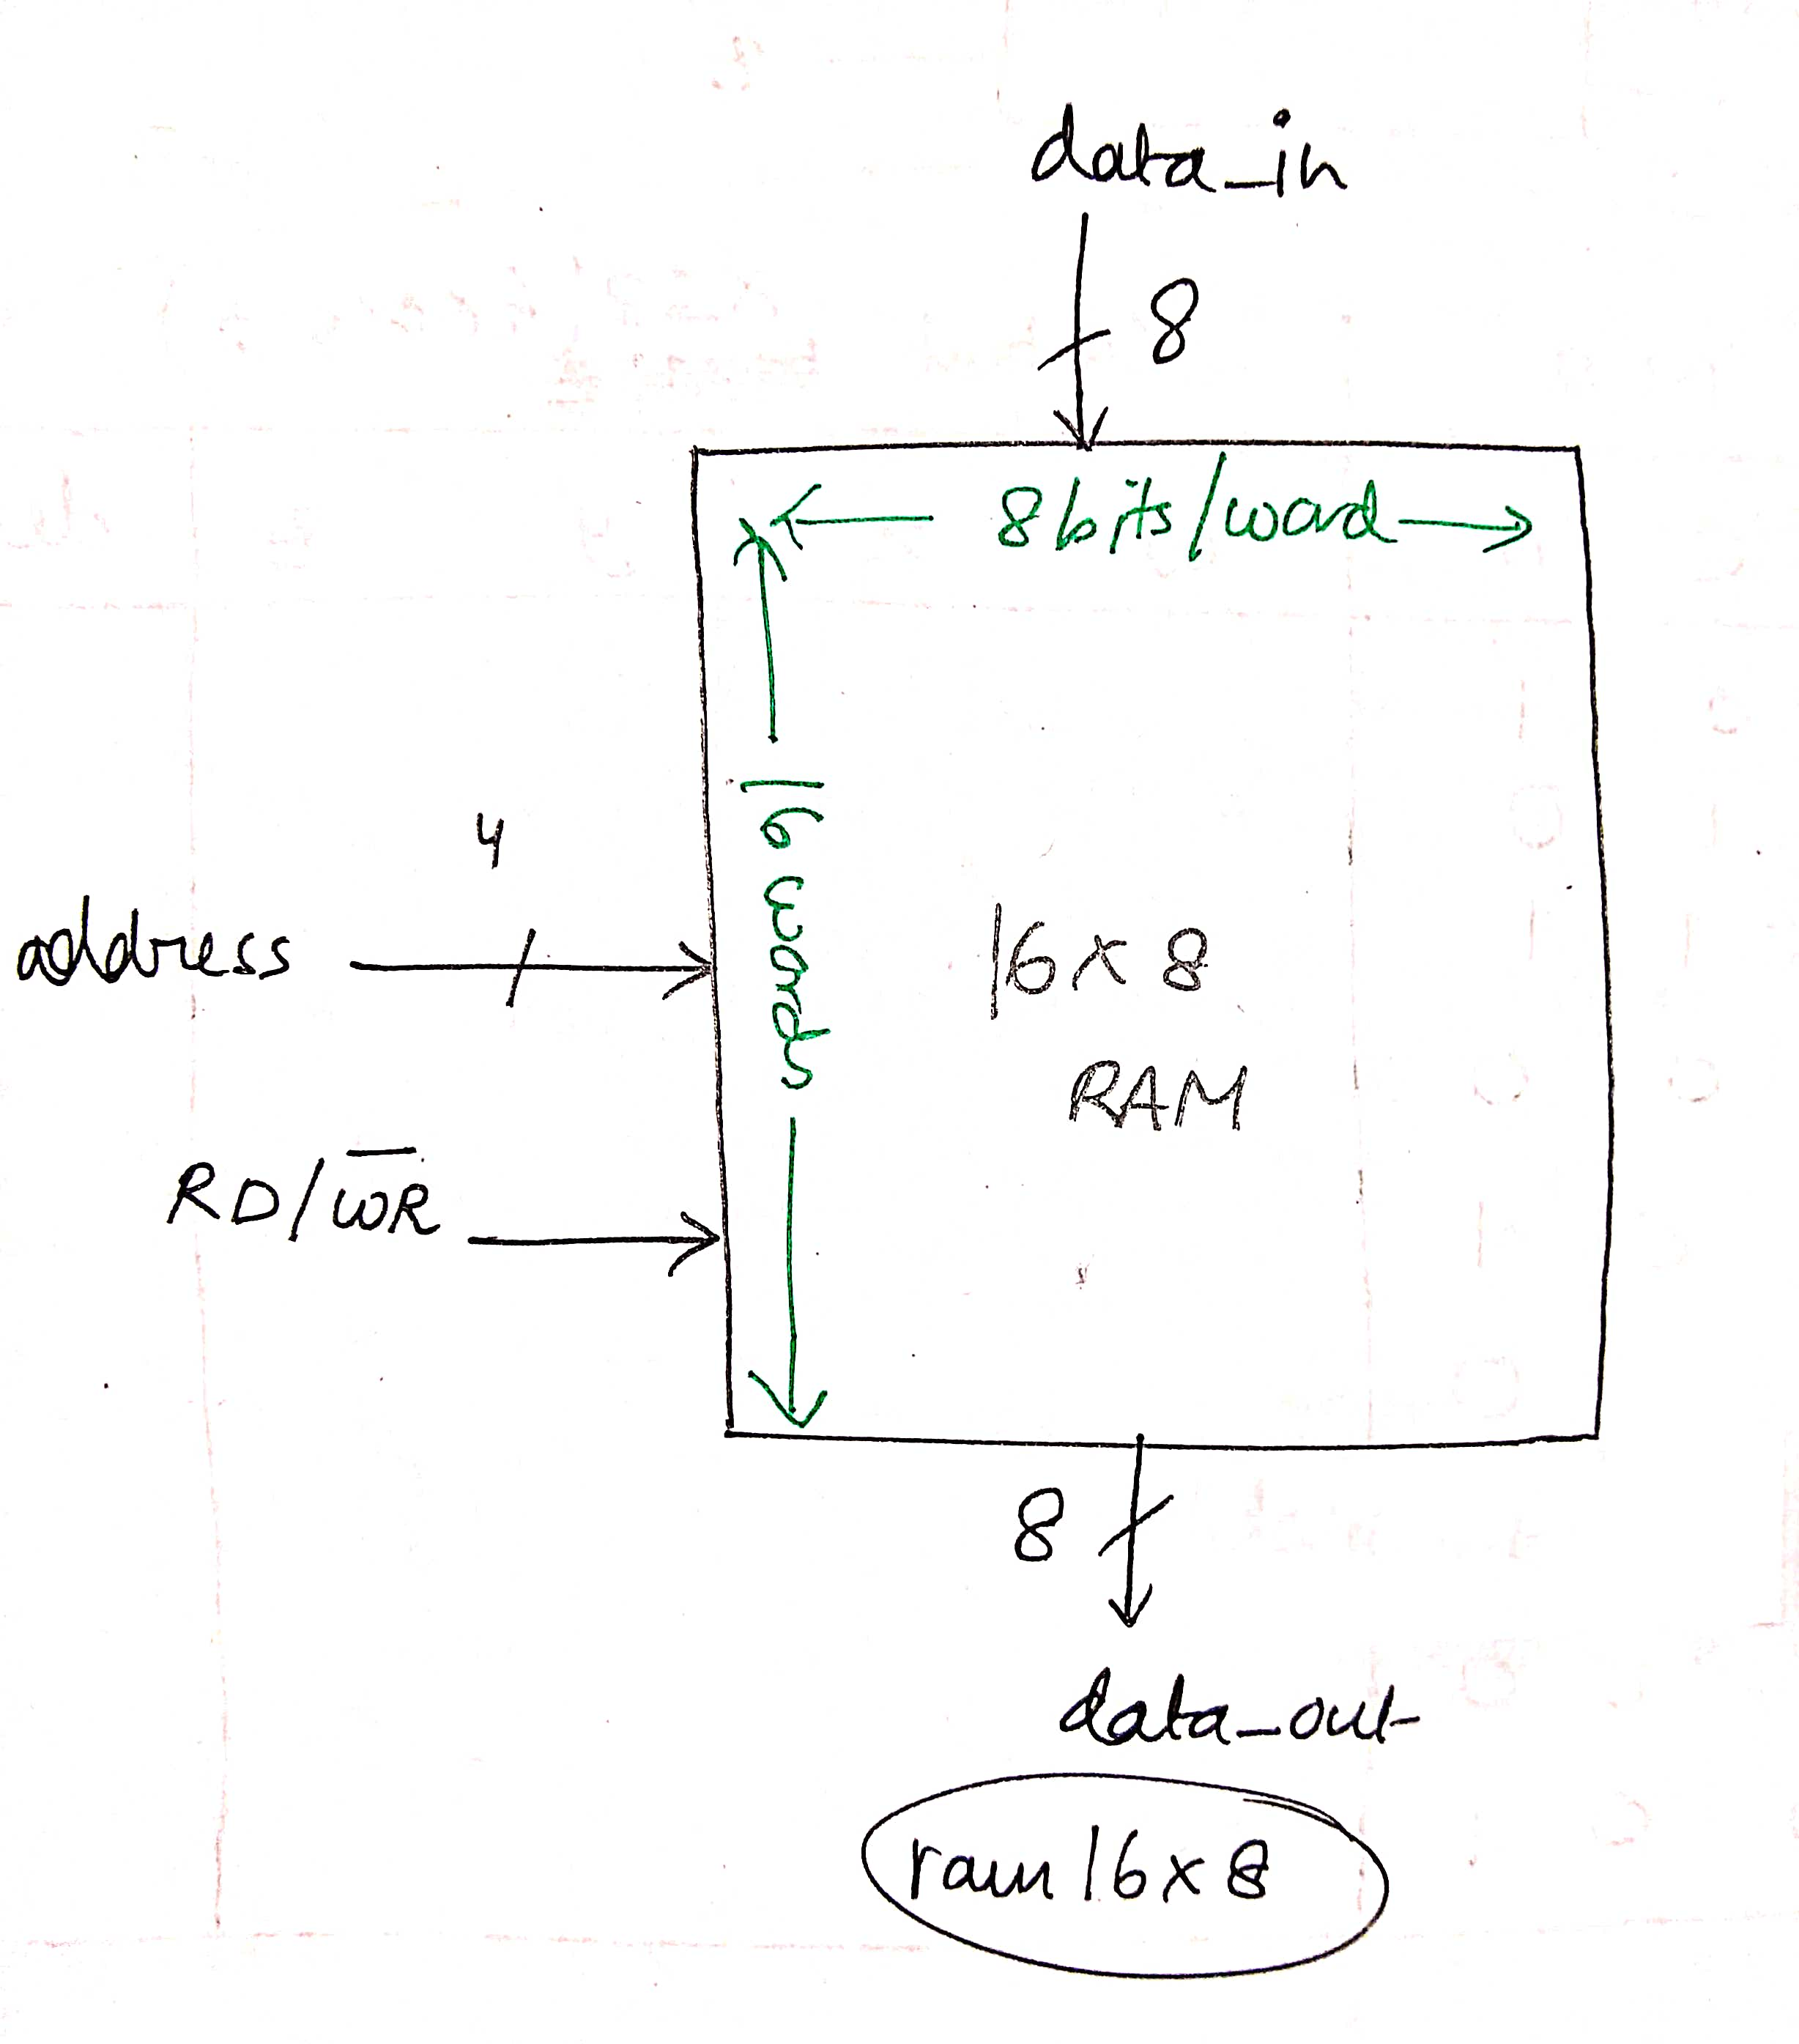 data_in
8
8 bits/word
16 words
4
address
16 x 8
RAM
RD/W̅R̅
8
data_out
ram16x8